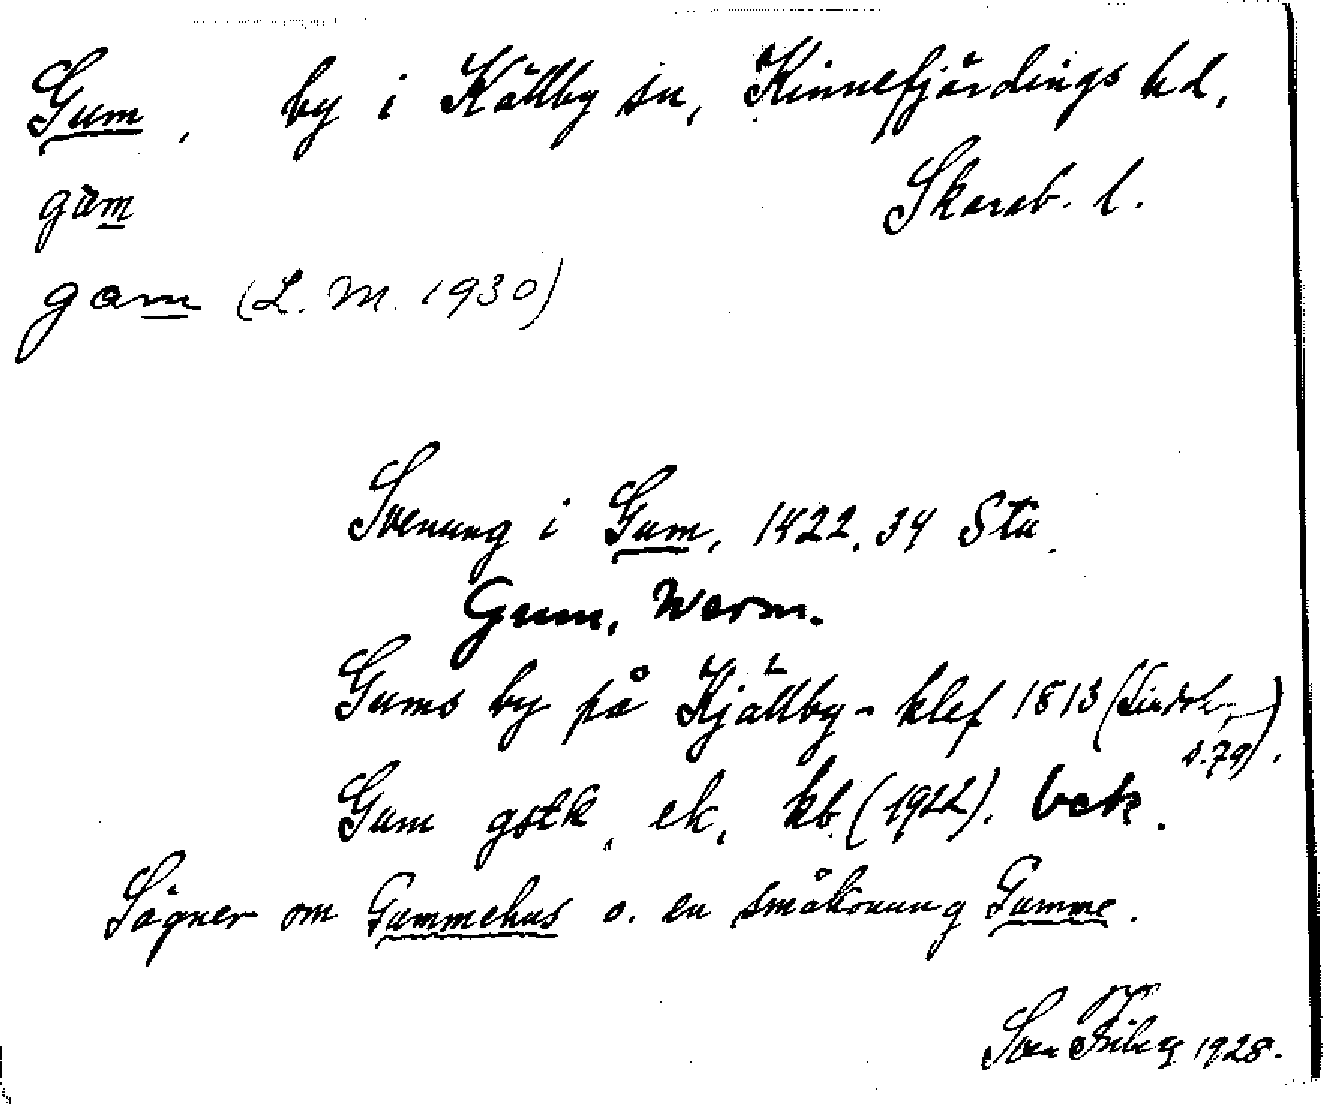 Gum, by i Källby sn, Kinnefjärdings hd,
Skarab. l.
gam
gam (L. M. 1930)
Svenung i Gum, 1422. 34 Sta.
Gum, Warm.
Gums by på Kjällby-klef 1813 (Lindsk.
s. 79).
Gum gstk, ek, kb (1922). bek.
Sägner om Gummehus o. en småkonung Gumme.
Sven Friberg 1928.